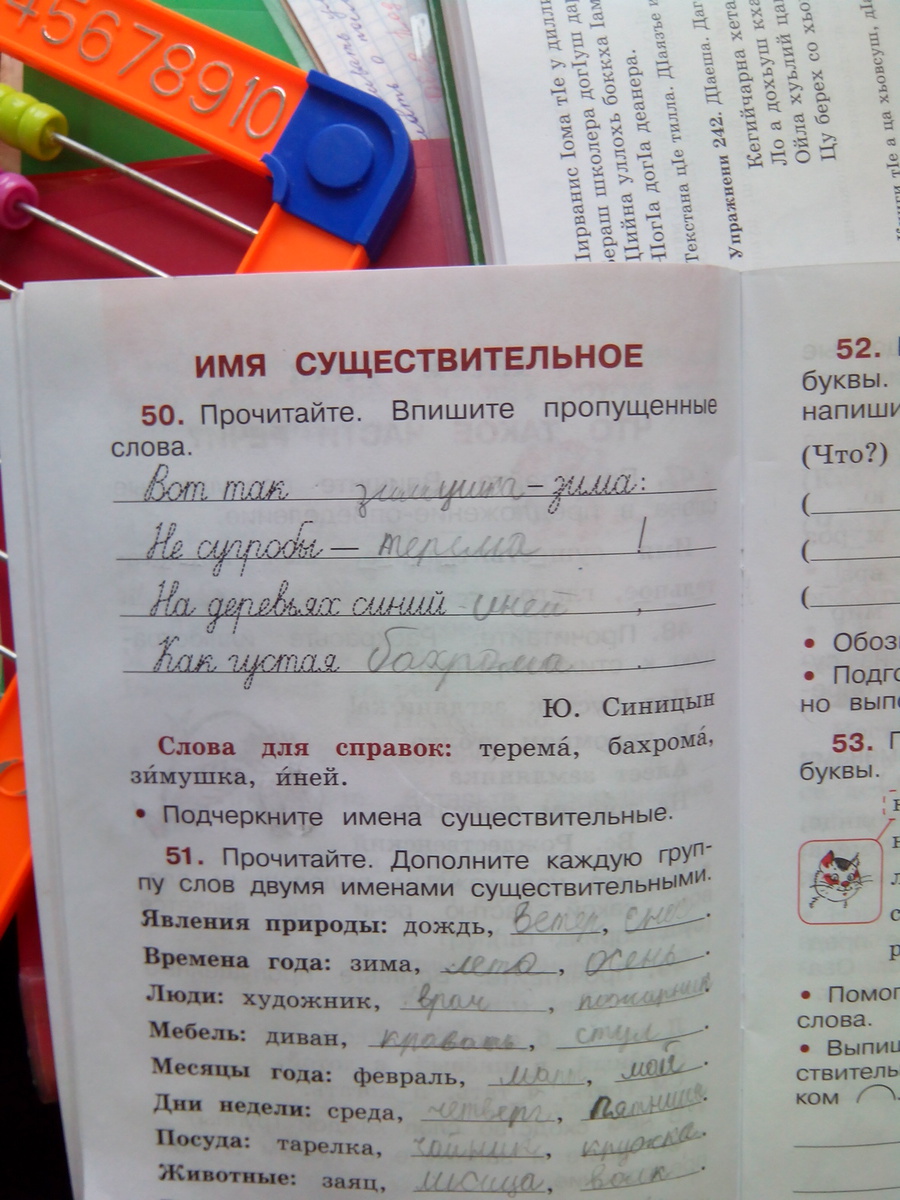 45678910
Iирванис Iома тIе у дилл
бераш школера догIуш да
Цийна уллохь боккха Iам
ЧогIа догIа деанера.
Текстана цIе тилла. ДIаязъе и
Упражнени 242. ДIаеша. Даг
Кегийчарна хета
Ло а дохьуш кха
Ойла хуьлий ца
Цу берех со хьо
тIе а ца хьовсуш, дI
ИМЯ СУЩЕСТВИТЕЛЬНОЕ
50. Прочитайте. Впишите пропущенные
слова.
Вот так – зима:
Не сугробы — терема !
На деревьях синий иней ,
Как густая бахрома .
Ю. Синицын
Слова для справок: терема́, бахрома́,
зи́мушка, и́ней.
• Подчеркните имена существительные.
51. Прочитайте. Дополните каждую груп-
пу слов двумя именами существительными.
Явления природы: дождь, ветер, снег.
Времена года: зима, лето, осень.
Люди: художник, врач, пожарник.
Мебель: диван, кровать, стул.
Месяцы года: февраль, март, май.
Дни недели: среда, четверг, пятница.
Посуда: тарелка, чайник, кружка.
Животные: заяц, лисица, волк.
52.
буквы.
напиши
(Что?)
(
(
(
• Обоз
• Подго
но выпо
53. П
буквы.
• Помог
слова.
• Выпиш
ствитель
ком